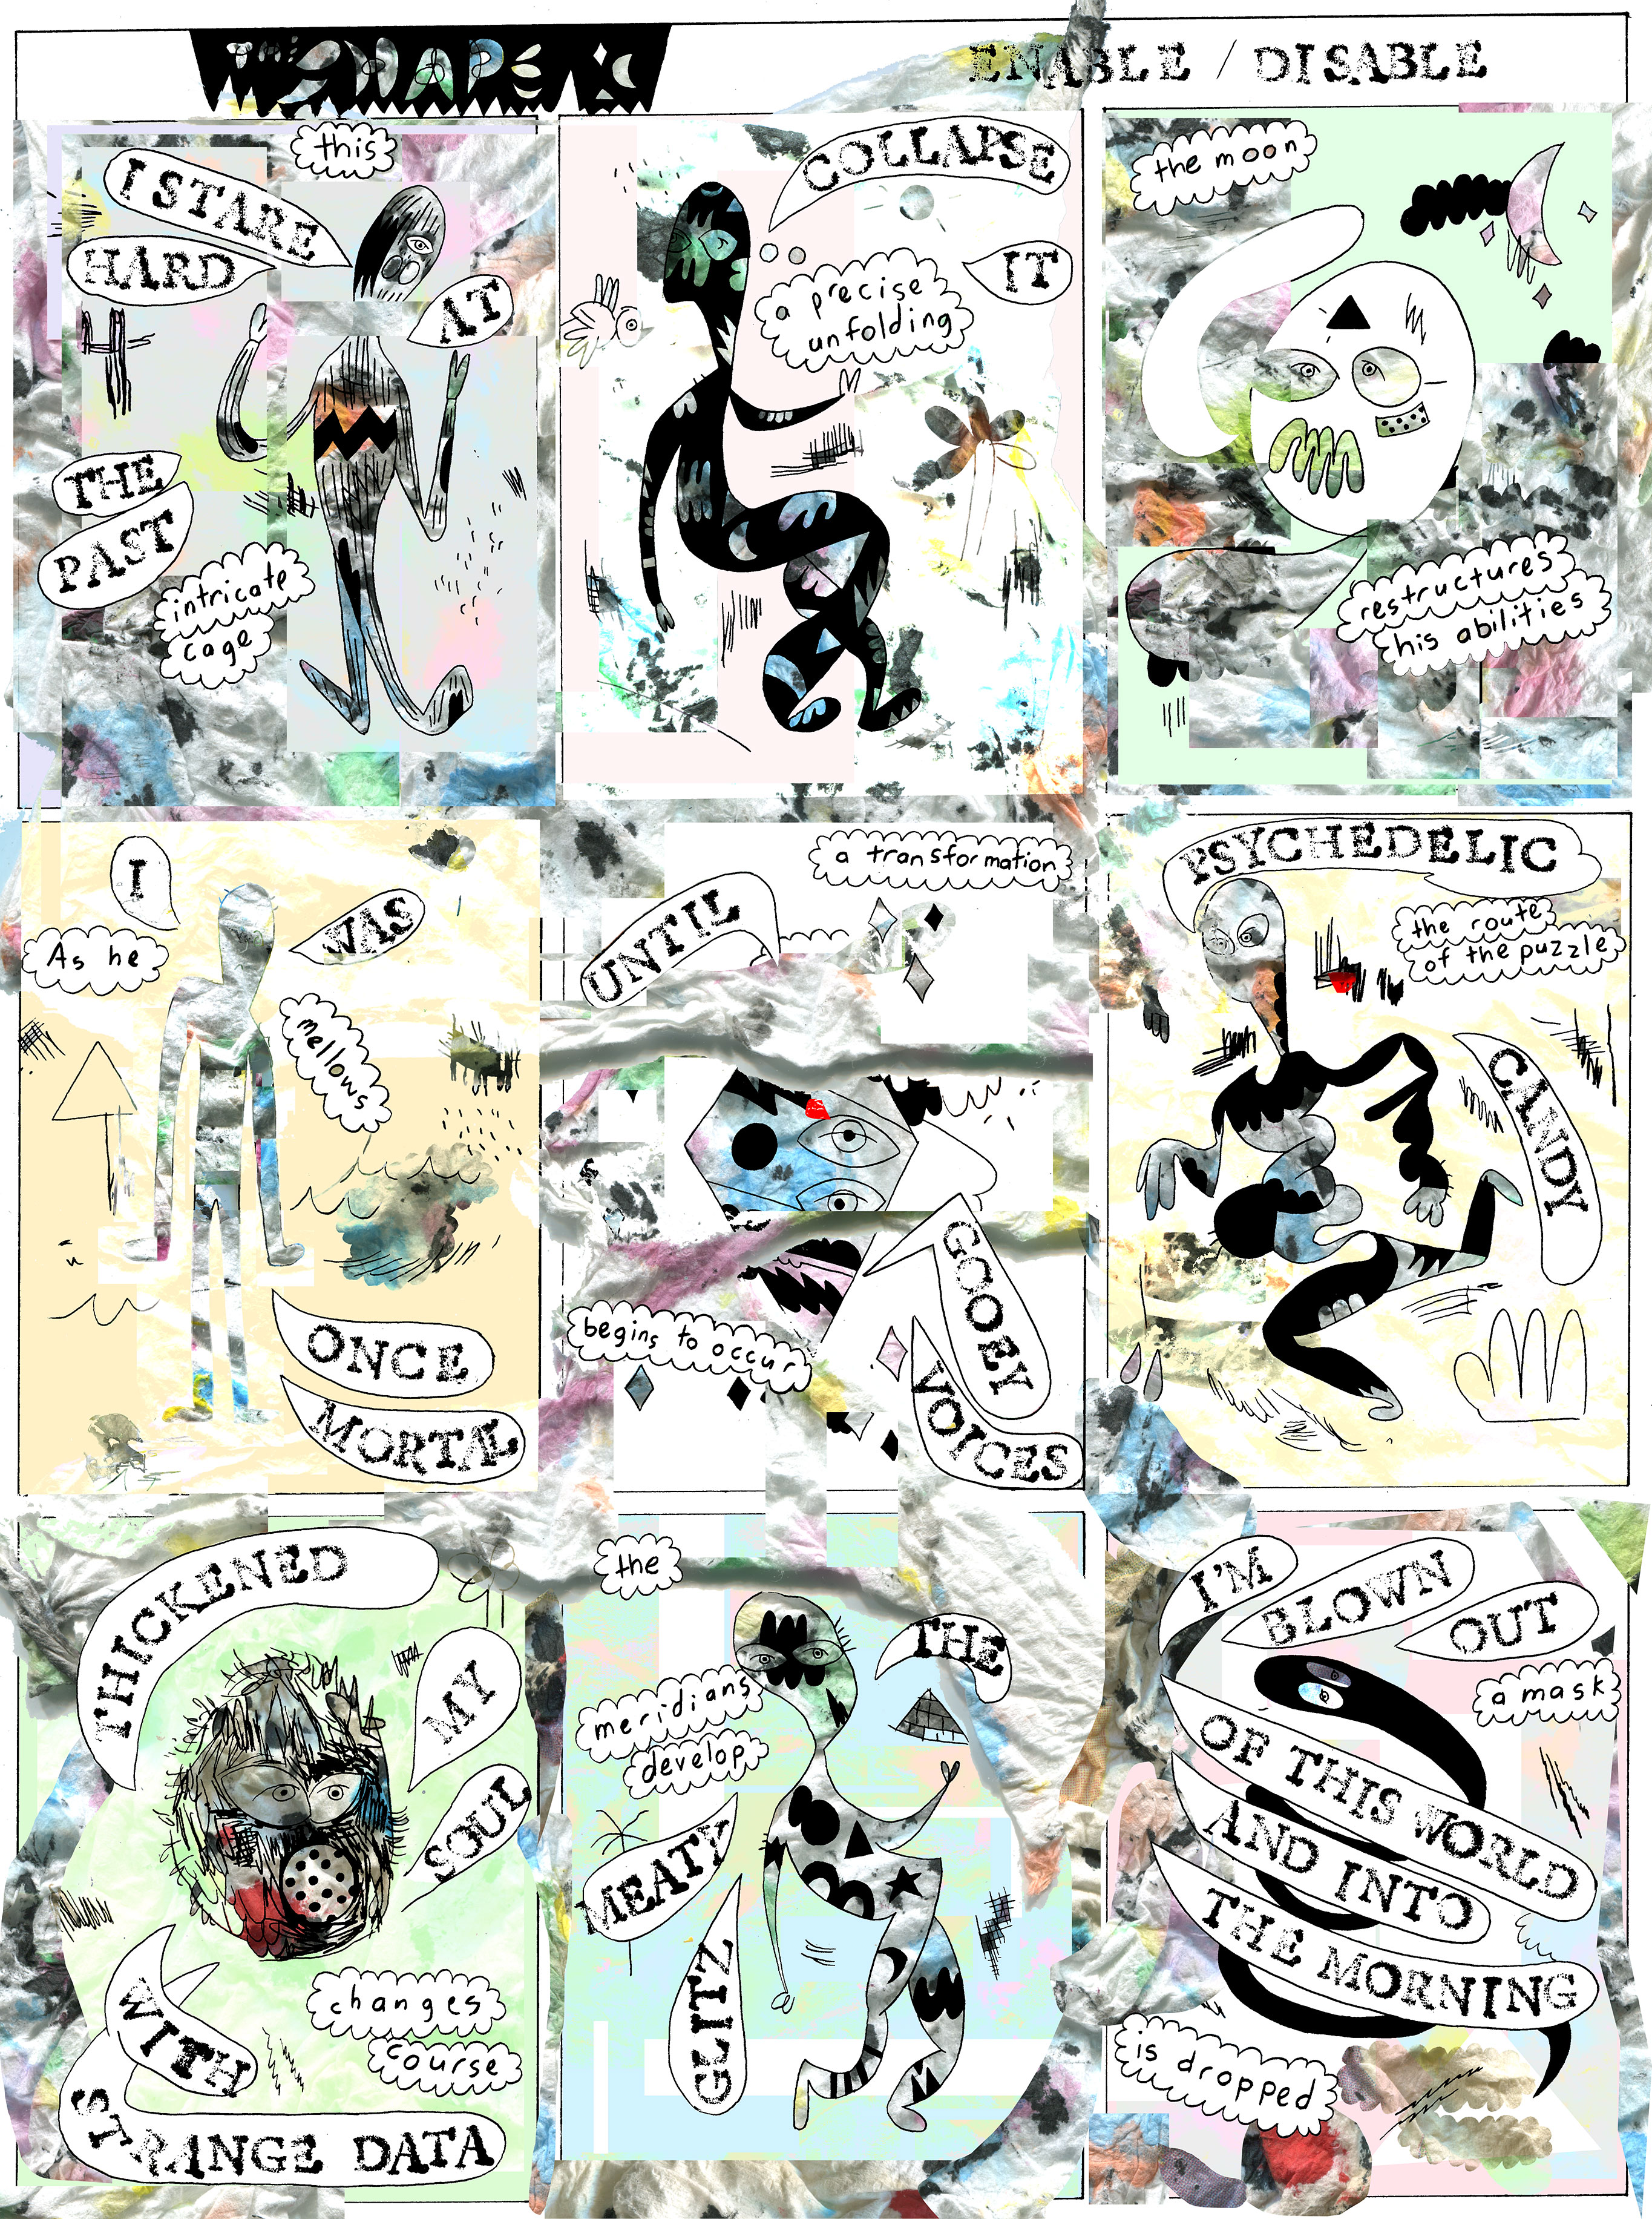 ENABLE / DISABLE
this
I STARE
HARD
AT
THE
PAST
intricate
cage
COLLAPSE
IT
a precise
unfolding
the moon
restructures
his abilities
I
WAS
As he
mellows
ONCE
MORTAL
a transformation
UNTIL
GOOEY
VOICES
begins to occur
PSYCHEDELIC
the route
of the puzzle
CANDY
THICKENED
MY
SOUL
WITH
changes
course
STRANGE DATA
the
THE
meridians
develop
MEATY
GLITZ
I'M
BLOWN
OUT
a mask
OF THIS WORLD
AND INTO
THE MORNING
is dropped